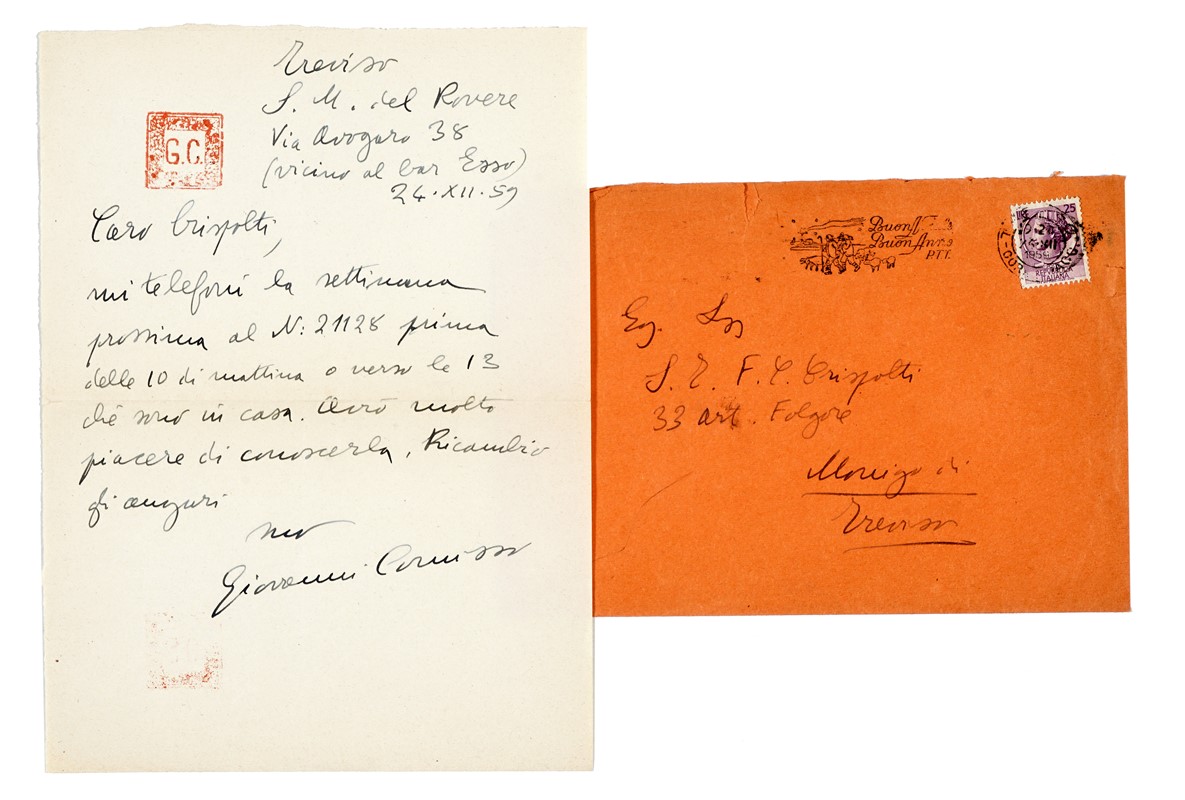 Treviso
S. M. del Rovere
Via Avogaro 38
(vicino al bar Esso)
24.XII.59
G.C.
Caro Crispolti,
mi telefoni la settimana
prossima al N: 21128 prima
delle 10 di mattina o verso le 13
chè sono in casa. Avrò molto
piacere di conoscerla. Ricambio
gli auguri
suo
Giovanni Comisso
Buon
Buon Anno
PTT.
LIRE 25
1959
REPUBBLICA
ITALIANA
Eg.
S. T. F. C. Crispolti
33 art. Folgore
Monigo di
Treviso